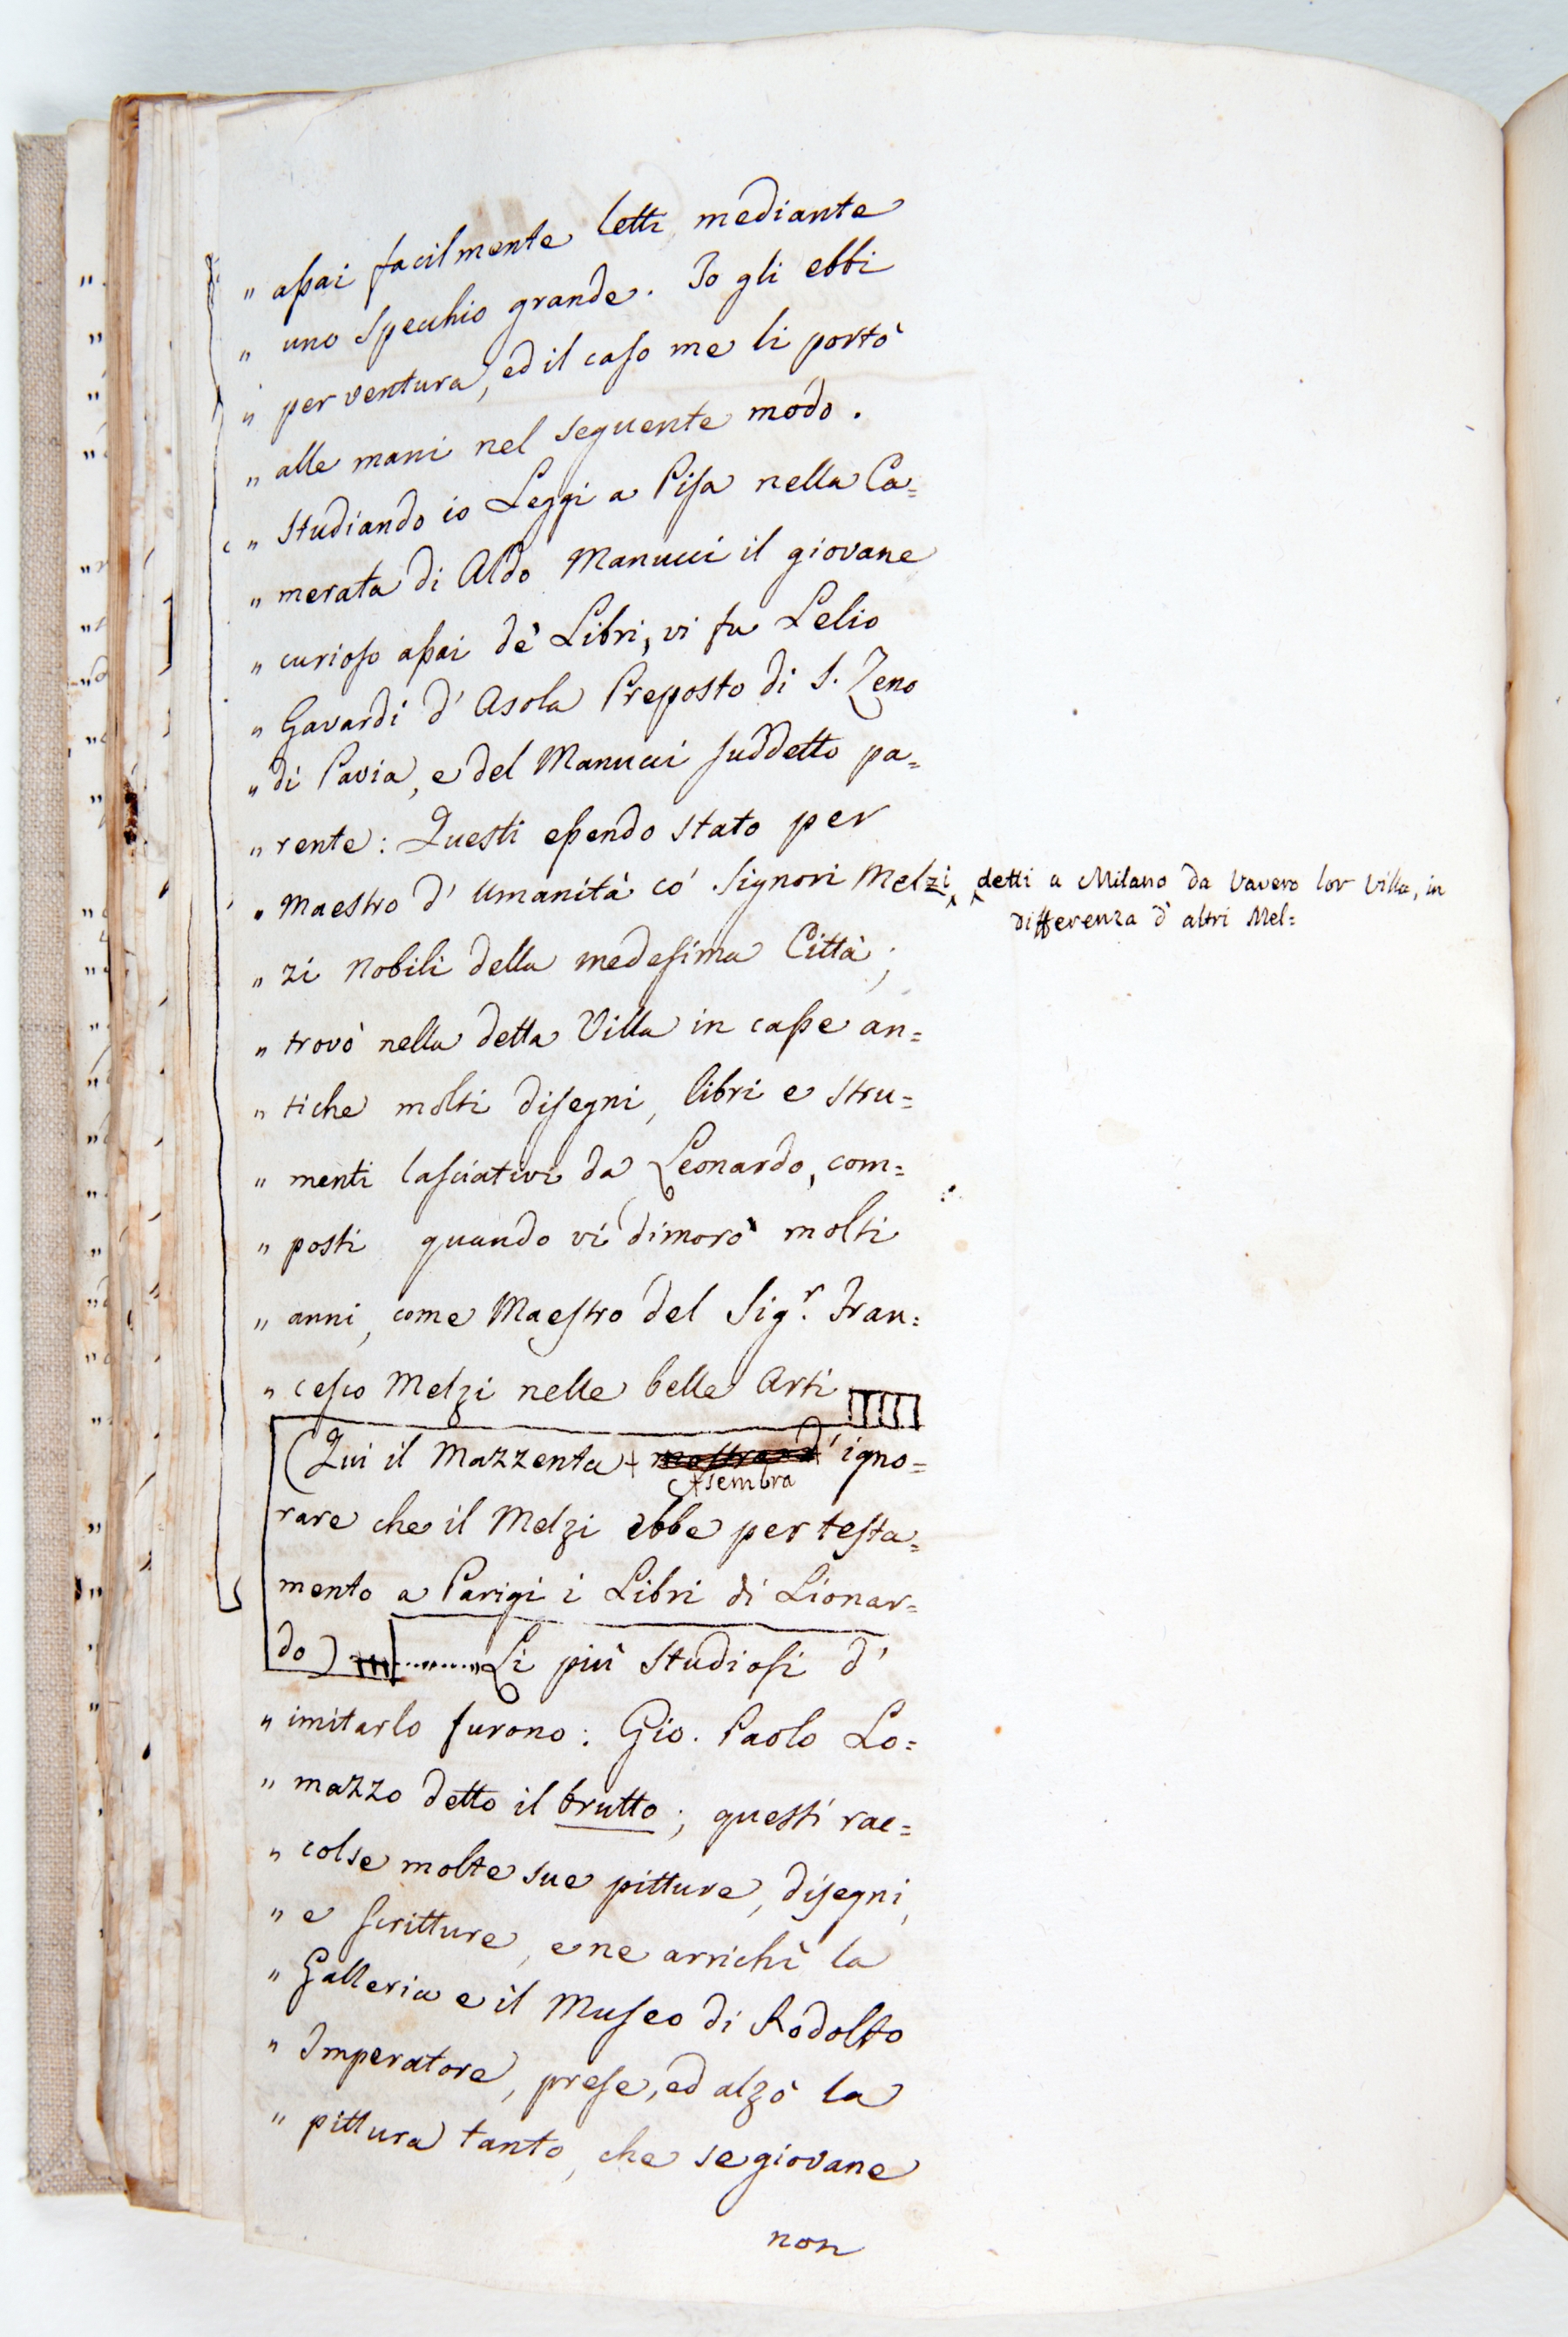 " assai facilmente letti mediante
" uno specchio grande. Io gli ebbi
" per ventura, ed il caso me li portò
" alle mani nel seguente modo.
" Studiando io Leggi a Pisa nella Ca=
" merata di Aldo Manucci il giovane
" curioso assai de' Libri, vi fu Lelio
" Gavardi d' Asola Preposto di S. Zeno
" di Pavia, e del Manucci suddetto pa=
" rente: Questi essendo stato per
" Maestro d' umanità co' Signori Melzi, detti a Milano da Vavero lor Villa, in
differenza d' altri Mel=
" zi Nobili della medesima Città;
" trovò nella detta Villa in casse an=
" tiche molti disegni, libri e stru=
" menti lasciativi da Leonardo, com=
" posti quando vi dimorò molti
" anni, come Maestro del Sig.r Fran=
" cesco Melzi nelle belle Arti
(Qui il Mazzenta + mostra d' igno=
+ sembra
rare che il Melzi ebbe per testa=
mento a Parigi i Libri di Lionar=
do) ........." Li più studiosi d'
" imitarlo furono: Gio. Paolo Lo=
" mazzo detto il brutto; questi rac=
" colse molte sue pitture, disegni,
" e scritture, e ne arrichì la
" Galleria e il Museo di Rodolfo
" Imperatore, prese, ed alzò la
" pittura tanto, che se giovane
non